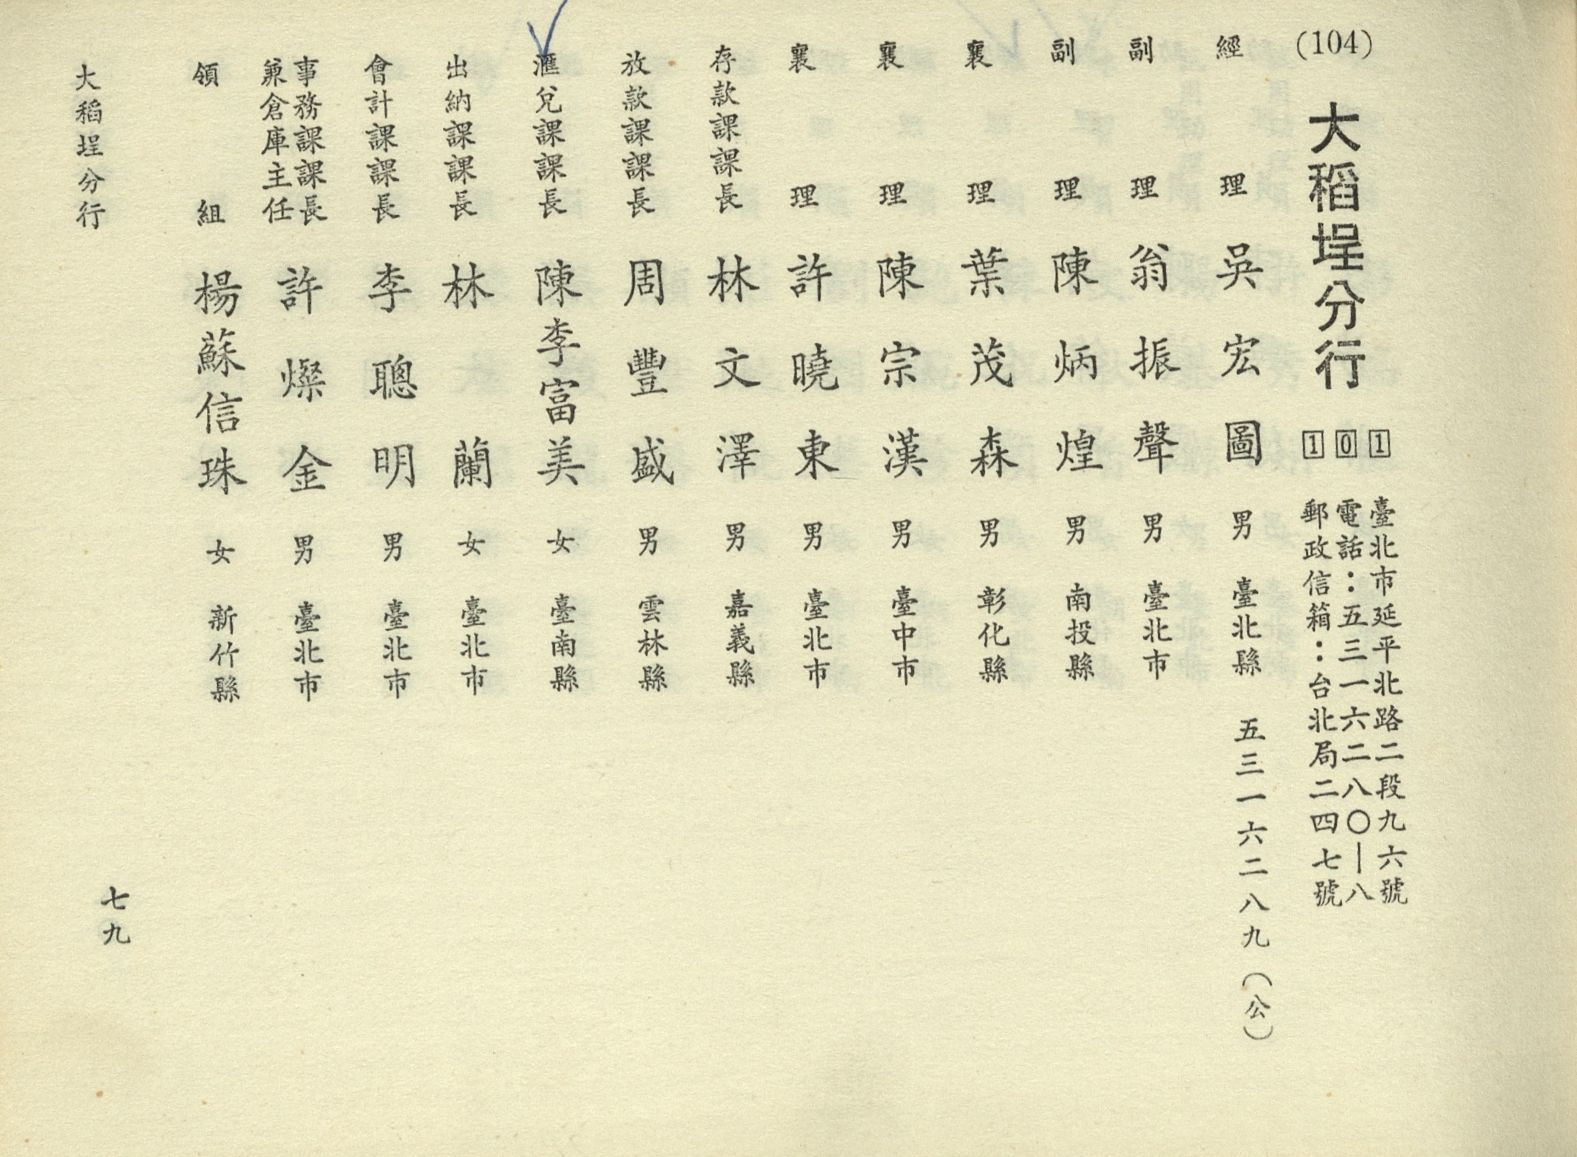 (104)
大稻埕分行
101
臺北市延平北路二段九六號
電話：五三一六二八〇｜八
郵政信箱：台北局二四七號
經理 吳宏圖 男 臺北縣 五三一六二八九（公）
副理 翁振聲 男 臺北市
副理 陳炳煌 男 南投縣
襄理 葉茂森 男 彰化縣
襄理 陳宗漢 男 臺中市
襄理 許曉東 男 臺北市
存款課課長 林文澤 男 嘉義縣
放款課課長 周豐盛 男 雲林縣
滙兌課課長 陳李富美 女 臺南縣
出納課課長 林蘭 女 臺北市
會計課課長 李聰明 男 臺北市
事務課課長
兼倉庫主任 許燦金 男 臺北市
領組 楊蘇信珠 女 新竹縣
大稻埕分行
七九